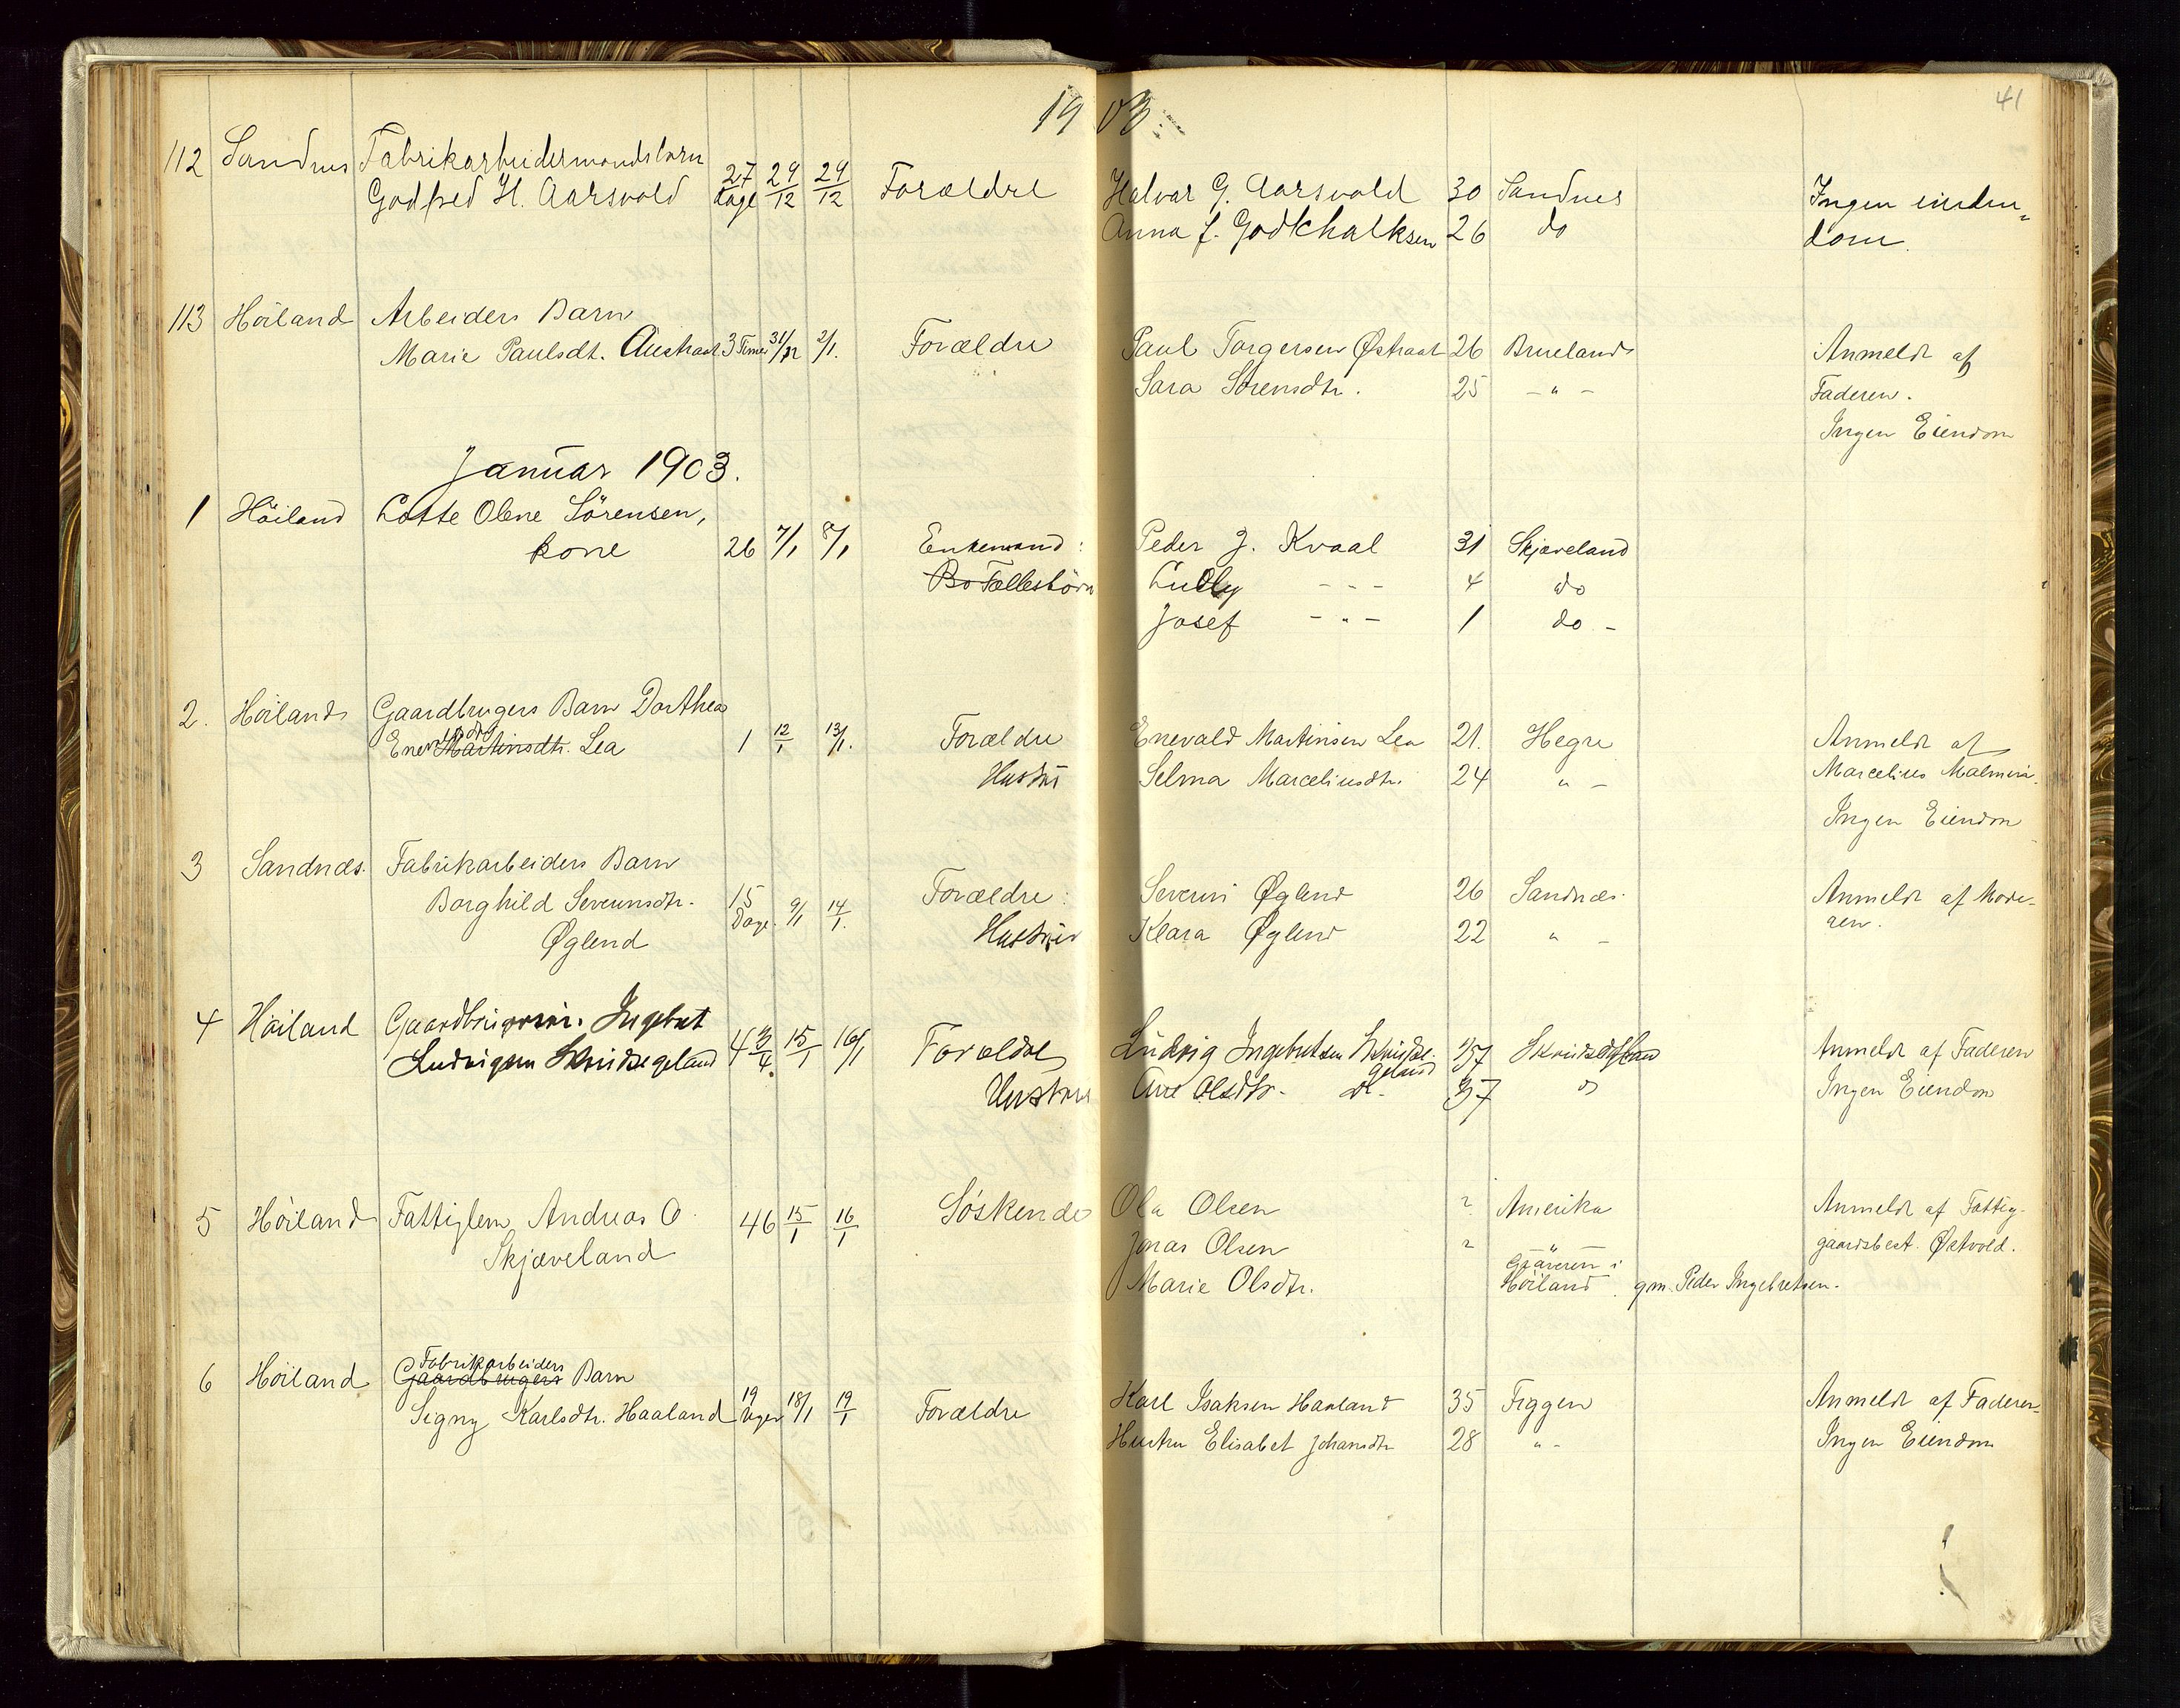 1903.
41
112 Sandnes Fabrikarbeidermandsbarn
Godfred H. Aarsvold 27 Dage 29/12 29/12 Forældre Halvar G. Aarsvold 30 Sandnes Ingen eien-
Anna J. Godtchalksen 26 do dom.
113 Höiland Arbeiders Barn
Marie Paulsdt. Austraat. 3 Timer 31/12 2/1. Forældre Paul Torgersen Østraat 26 Brueland Anmeldt af
Sara Sörensdtr. 25 - " - Faderen.
Ingen Eiendom
Januar 1903.
1 Höiland Lotte Olene Sörensen,
kone 26 7/1 8/1 Enkemand: Peder J. Kvaal 31 Skjæveland
Bo Fællesbörn Lully - - - 4 do
Josef - " - 1 do -
2. Höiland Gaardbrugers Barn Dorthea
Enev Martinsdtr. Lea 1 12/1 13/1. Forældre Enevald Martinsen Lea 21. Hegre Anmeldt af
Hustru Selma Marceliusdtr. 24 " - Marcelius
Ingen Eiendom
3 Sandnæs. Fabrikarbeiders Barn
Borghild Severinsdtr. 15 Dage. 9/1 14/1. Forældre: Severin Øglend 26 Sandnæs. Anmeldt af Mode-
Øglend Hustru Klara Øglend 22 " - ren.
4 Höiland Gaardbrugers. Ingebret
Ludvigsen Skeidsegeland 4 3/4. 15/1 16/1 Forældre Ludvig Ingebretsen Skeidse- geland 57 Anmeldt af Faderen
Hustru Ane Olsdtr. do. 37 " Ingen Eiendom
5 Höiland Fattiglem, Andreas O. 46 15/1 16/1 Söskende Ola Olsen ? Amerika Anmeldt af Fattig-
Skjæveland Jonas Olsen ? gaardsbest. Østvold.
Marie Olsdtr. Gräveren i Höiland. gm. Peder Ingebretsen.
6 Höiland Fabrikarbeiders
Gaardbrugers Barn
Signy Karlsdtr. Haaland 19 Uger 18/1 19/1 Forældre Karl Isaksen Haaland 35 Figgen Anmeldt af Faderen
Hustru Elisabet Johansdtr 28 " - Ingen Eiendom